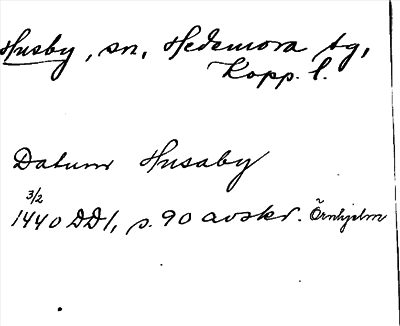 Husby, sn, Hedemora tg,
Kopp. l.
Datum Husaby
3/2
1440 DD1, s. 90 avskr. Örnhjelm